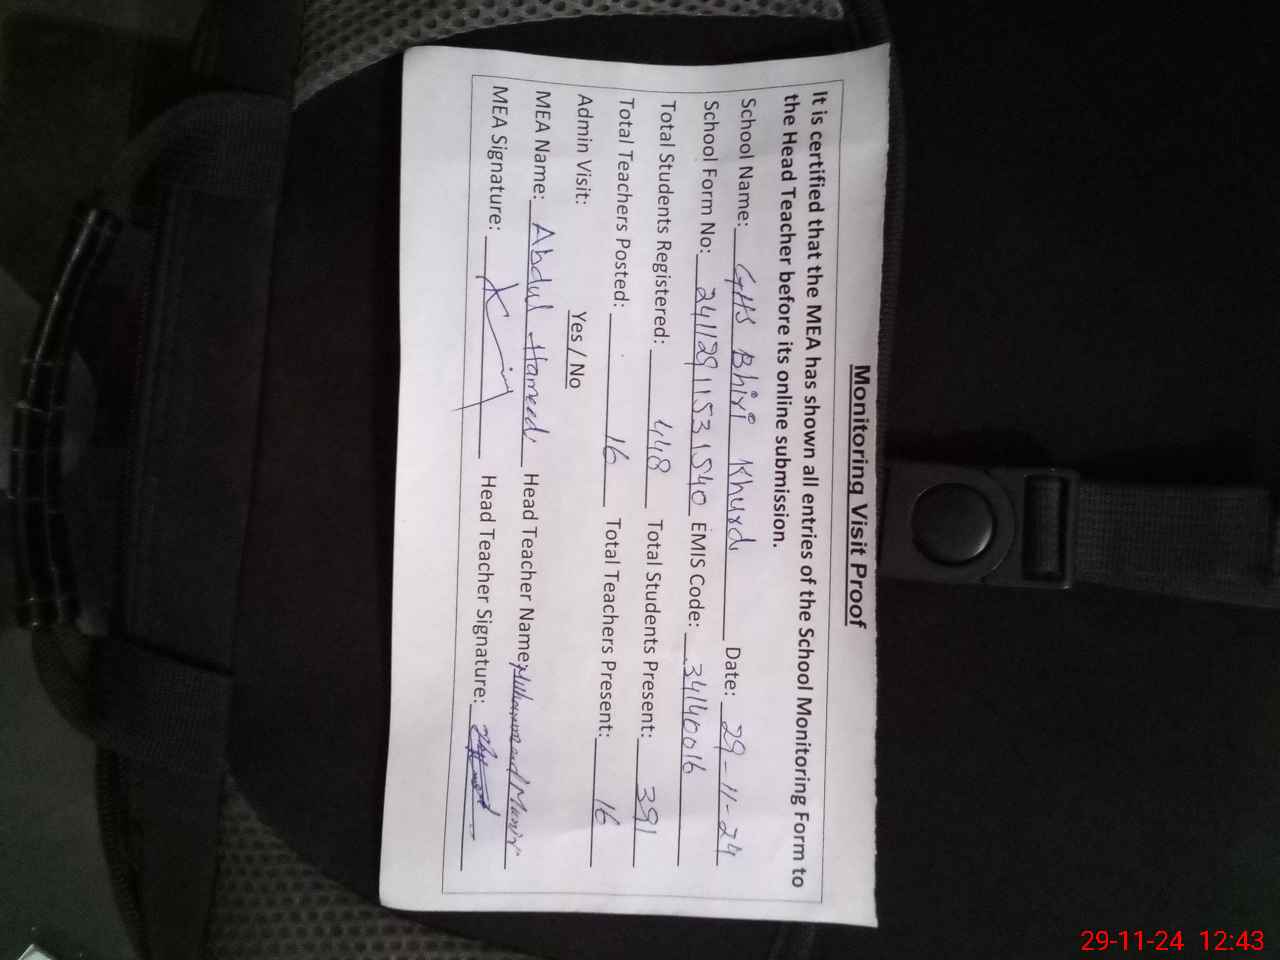 Monitoring Visit Proof
It is certified that the MEA has shown all entries of the School Monitoring Form to
the Head Teacher before its online submission.
School Name: GHS Bhiri Khurd Date: 29-11-24
School Form No: 24112911531540 EMIS Code: 34140016
Total Students Registered: 448 Total Students Present: 391
Total Teachers Posted: 16 Total Teachers Present: 16
Admin Visit: Yes / No
MEA Name: Abdul Hameed Head Teacher Name: Muhammad Munir
MEA Signature: Head Teacher Signature:
29-11-24 12:43